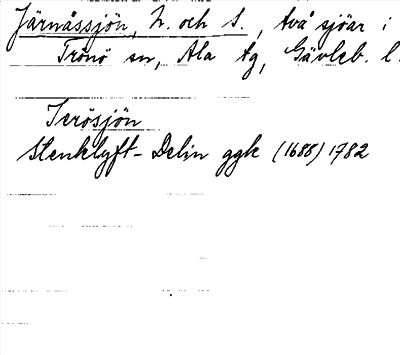 Järnåssjön, N. och S., två sjöar i
Trönö sn, Ala tg, Gävleb. l.
Jerösjön
Stenklyft-Delin ggk (1688) 1782